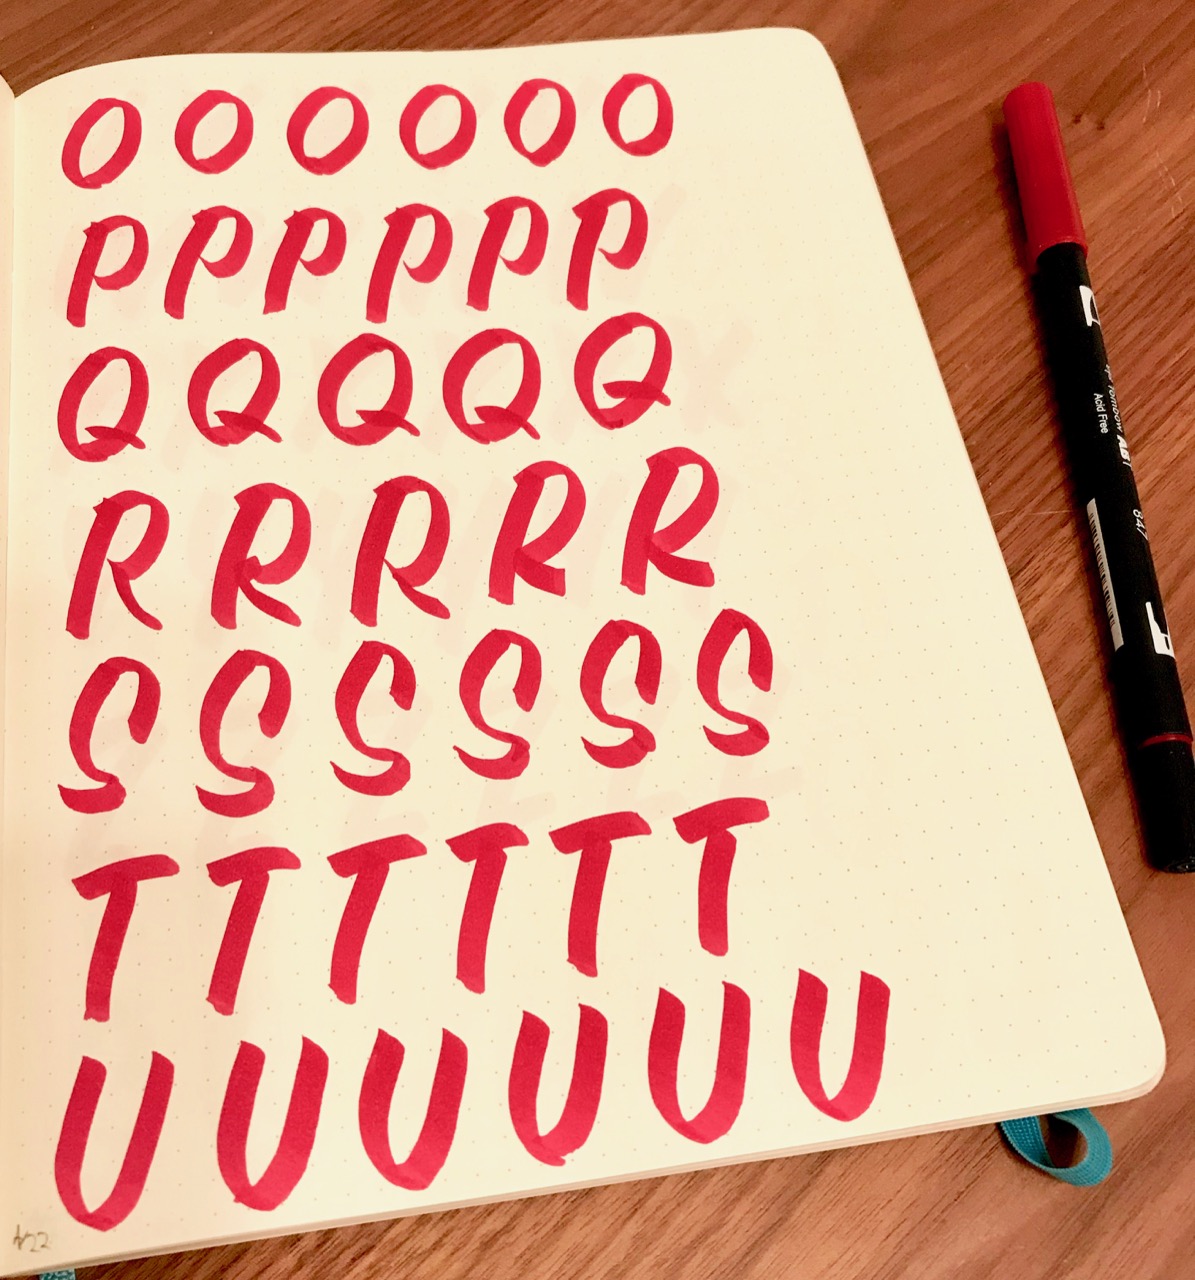 O O O O O O
P P P P P P
Q Q Q Q Q
R R R R R
S S S S S S
T T T T T T
U U U U U U
Tombow ABT 847
Acid Free